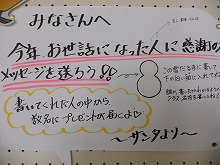 みなさんへ
今年お世話になった人に感謝の
メッセージを送ろう!!
この雪だるまに書いて
下の白い箱に入れてね
書いてくれた人の中から
数名にプレゼントが届くよ♡
〜サンタより〜